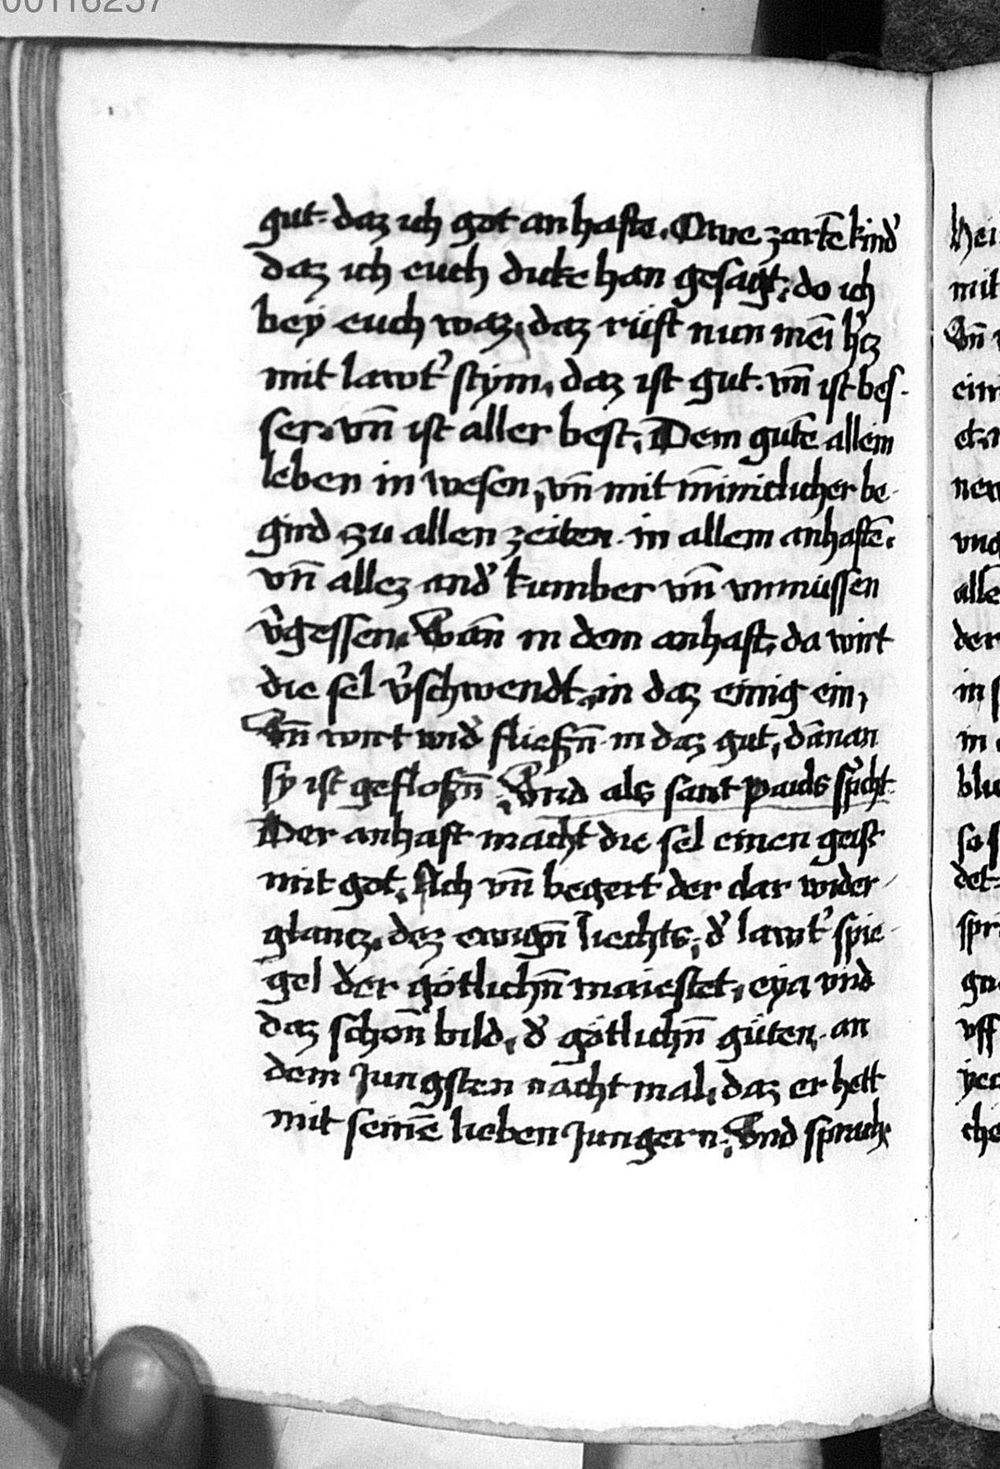 00116257
gut. daz ich got an hafte. Owe zartē kind̕
daz ich euch dicke han gesagt. do ich
bey euch waz, daz rüft nun mei h̕cz
mit lawt̕ stym. daz ist gut. vn̄ ist bes-
ser. vn̄ ist aller best. Dem gutē allein
leben in wesen, vn̄ mit mīniclicher be-
gird zu allen zeiten. in allem anhaftē.
vn̄ allez and̕ kumber vn̄ vnmüssen
v̕gessen. Wān in dem anhaft, da wirt
die sel v̕schwendt, in daz einig ein,
Vn̄ wirt wid̕ flieszn̄ in daz gut, dānan
sy ist gefloszn̄. Vnd als sant pauls sp̕icht
Der anhaft macht die sel einen geist
mit got. Ach vn̄ begert der dar wider-
glancz, dez ewign̄ liechts, d̕ lawt̕ spie-
gel der götlichn̄ maiestet, eya vnd
daz schon̄ bild, d̕ götlichn̄ güten, an
dem Jungsten nacht mal, daz er hett
mit seinē lieben Jungern. Vnd sprach
hei
mit
Vn̄
ein
new
vnd
alle
der
in s
in
blu
so s
det
spr
vff
che